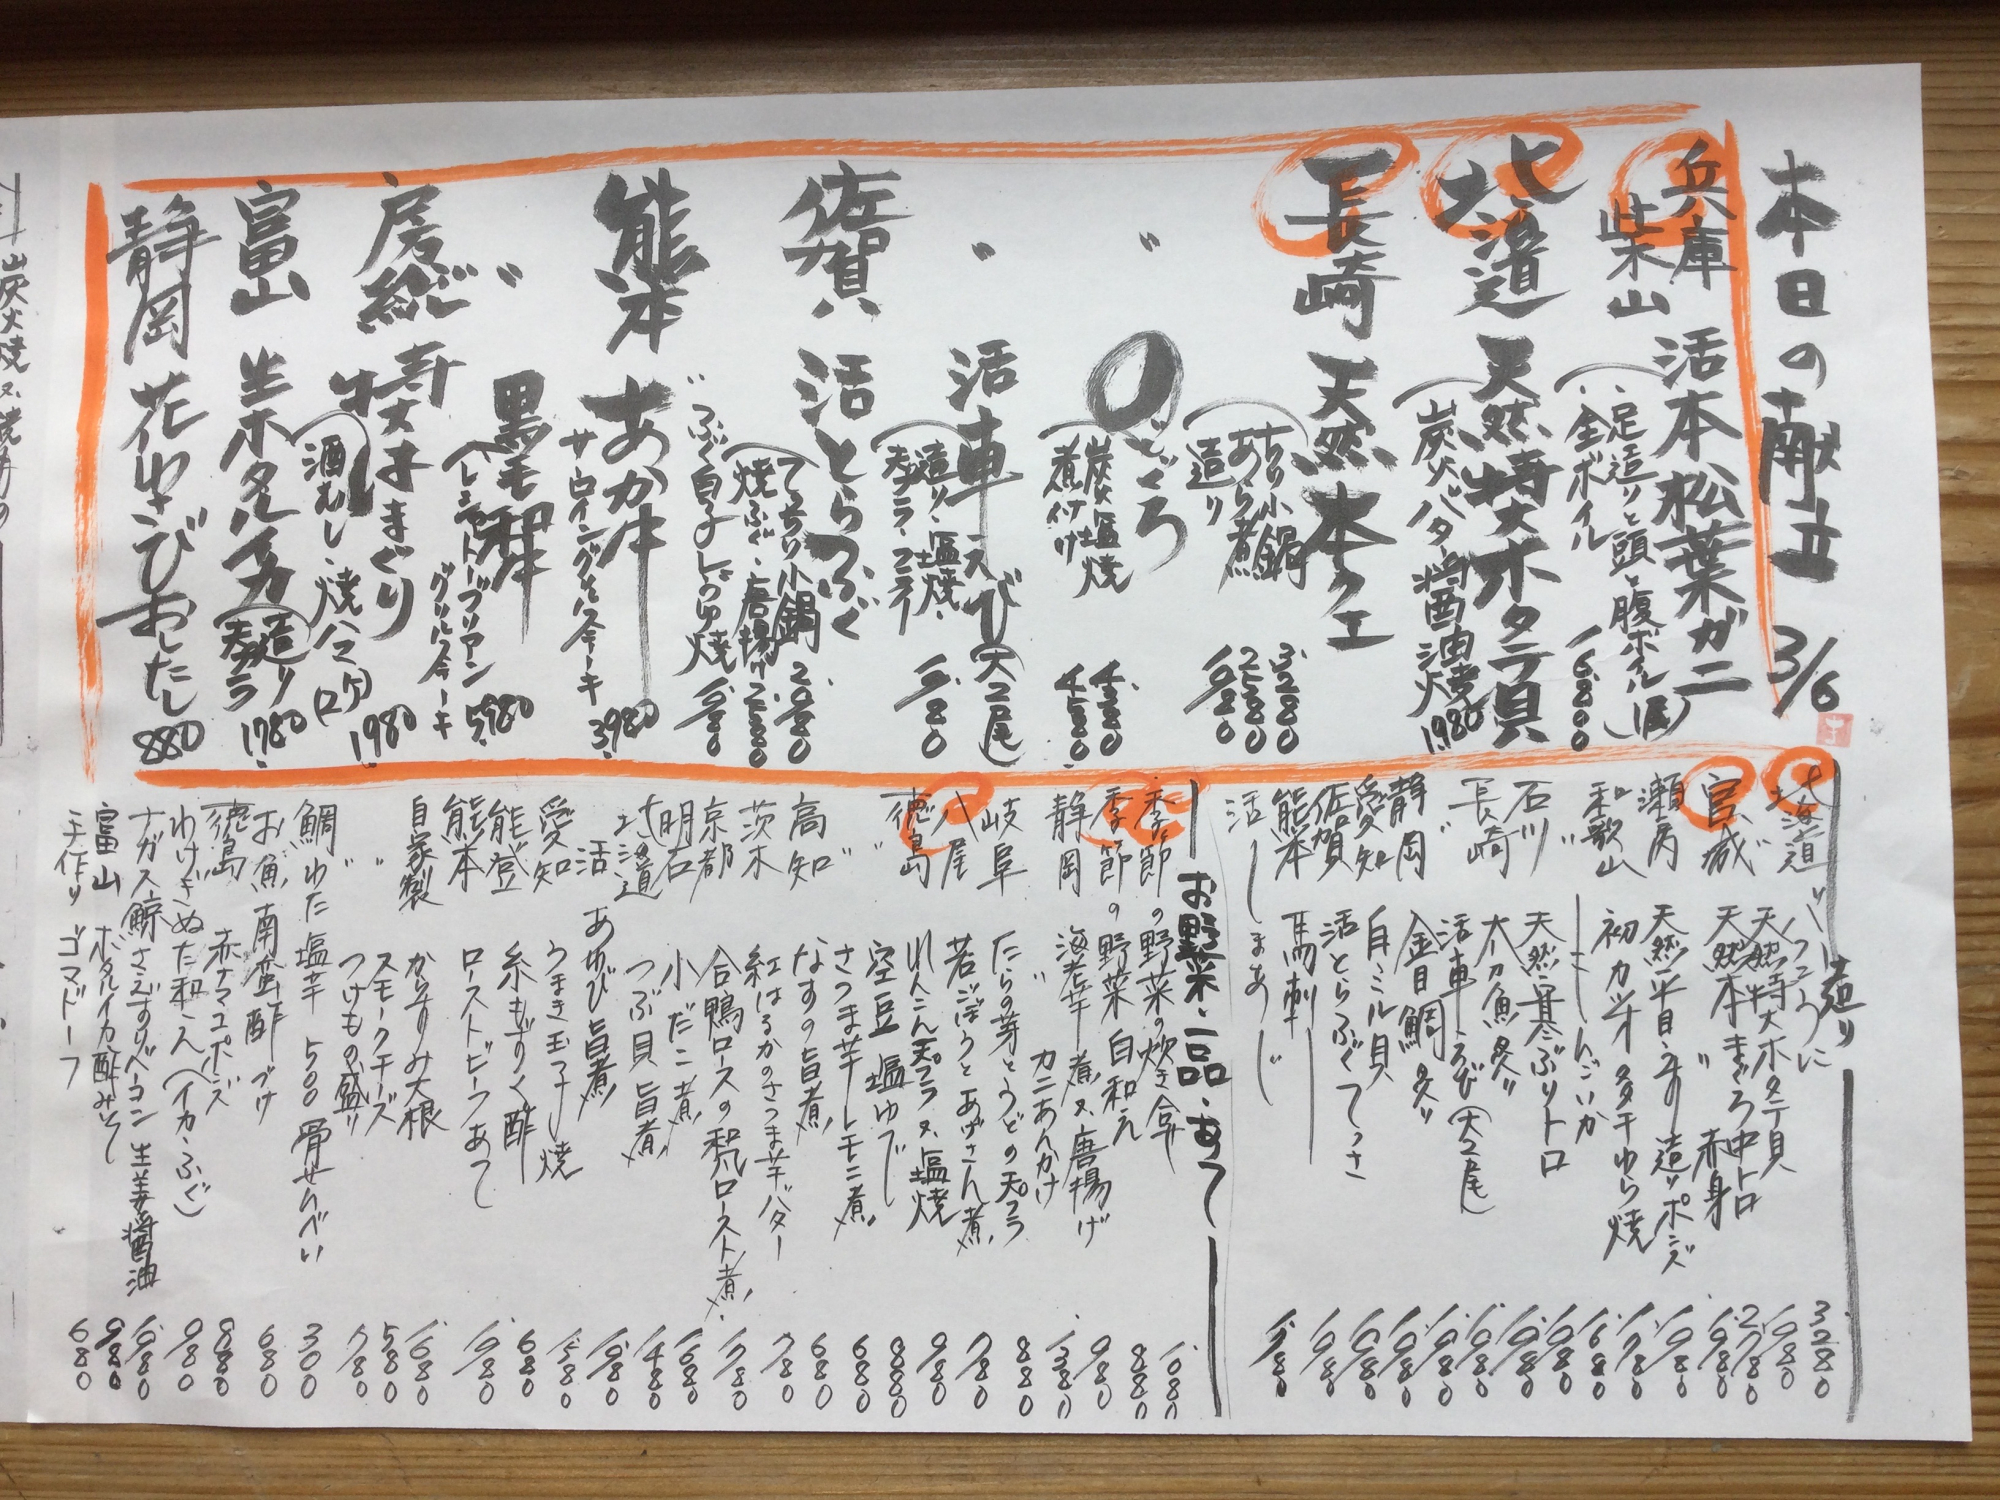 本日の献立 3/6
兵庫 柴山 活本松葉ガニ
足造りと頭と腹ボイル
全ボイル 16800
北海道 天然特大ホタテ貝
炭火バター醤油焼 1980
長崎 天然本クエ
ちり小鍋 3280
あら煮 2580
造り 1980
〃 のどぐろ
炭火塩焼 4380
煮付け 4580
〃 活車えび(大2尾)
造り・塩焼・
天プラ・フライ 1980
佐賀 活とらふぐ
てっちり小鍋 2980
焼ふぐ・唐揚げ 2580
〃ふぐ白子しょうゆ焼
熊本 あか牛
サーロイングリルステーキ 3980
〃 黒毛和牛
シャトーブリアン
グリルステーキ 5980
房総 特大はまぐり
酒むし・焼 (2ケ) 1980
富山 生ホタルイカ
造り
天プラ 1780
静岡 花わさびおしたし 880
造り
北海道 うに 3280
〃 天然特大ホタテ貝 1980
宮城 天然本まぐろ中トロ 2780
〃 〃 赤身 1980
瀬戸内 天然平目うす造りポンズ 1980
和歌山 初カツオ タタキわら焼 1780
〃 しんこいか 1680
石川 天然寒ぶりトロ 1980
長崎 大カマス炙り 1980
〃 活車えび(大2尾) 1980
静岡 金目鯛炙り 1980
愛知 白ミル貝 1980
佐賀 活とらふぐてっさ 1980
熊本 馬刺し 1980
活〆しまあじ
お野菜・一品・あて
季節の野菜の炊き合せ 1080
季節の野菜白和え 880
静岡 海老芋煮又唐揚げ 980
〃 カニあんかけ 1380
岐阜 たらの芽とうどの天プラ 880
八尾 若ごぼうとあげさん煮 780
徳島 れんこん天プラ又塩焼 980
〃 空豆塩ゆで 880
〃 さつま芋レモン煮 680
高知 なすの旨煮 680
茨木 紅はるかのさつま芋バター 780
京都 合鴨ロースの和風ロースト煮 1780
明石 小だこ煮 1680
北海道 つぶ貝旨煮 1480
活 あわび旨煮
愛知 うまき玉子焼 1580
能登 糸もずく酢 680
熊本 ローストビーフあて 1980
自家製 からすみ大根 1680
〃 スモークチーズ 580
〃 つけもの盛り 780
鯛わた塩辛 500 骨せんべい 300
お魚南蛮酢づけ 680
徳島 赤ナマコポンズ 980
わけぎぬた和え(イカ・ふぐ) 980
ナガス鯨さえずりベーコン 生姜醤油 1980
富山 ホタルイカ酢みそ 980
手作り ゴマドーフ 680